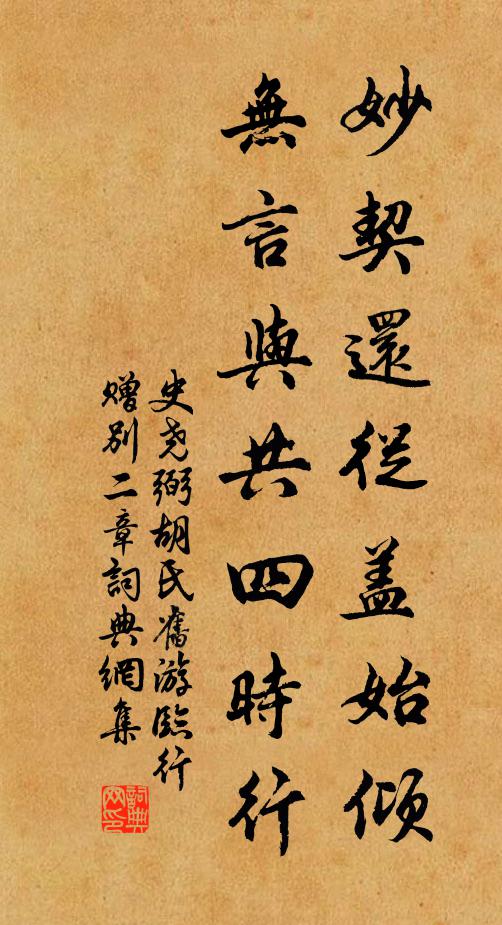 妙契還從盖始傾
無言與共四時行
史尧弼胡氏舊游臨行
赠别二章詞典網集
詞典網印